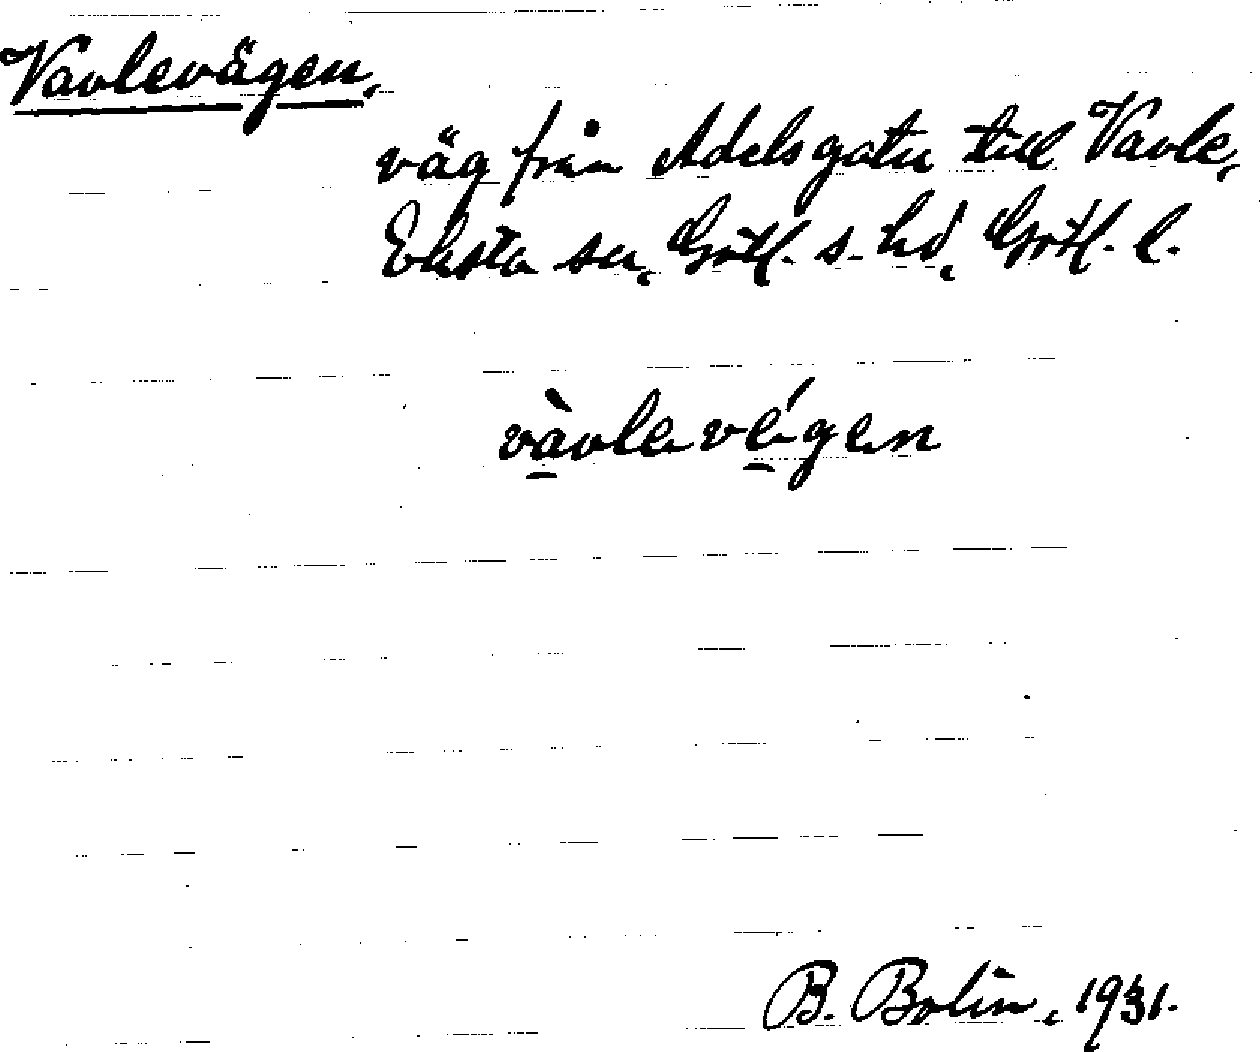 Vavlevägen,
väg från Adelsgatu till Vavle,
Eksta sn, Gotl. s. hd, Gotl. l.
vàvlevé̱gen
B. Bolin, 1931.